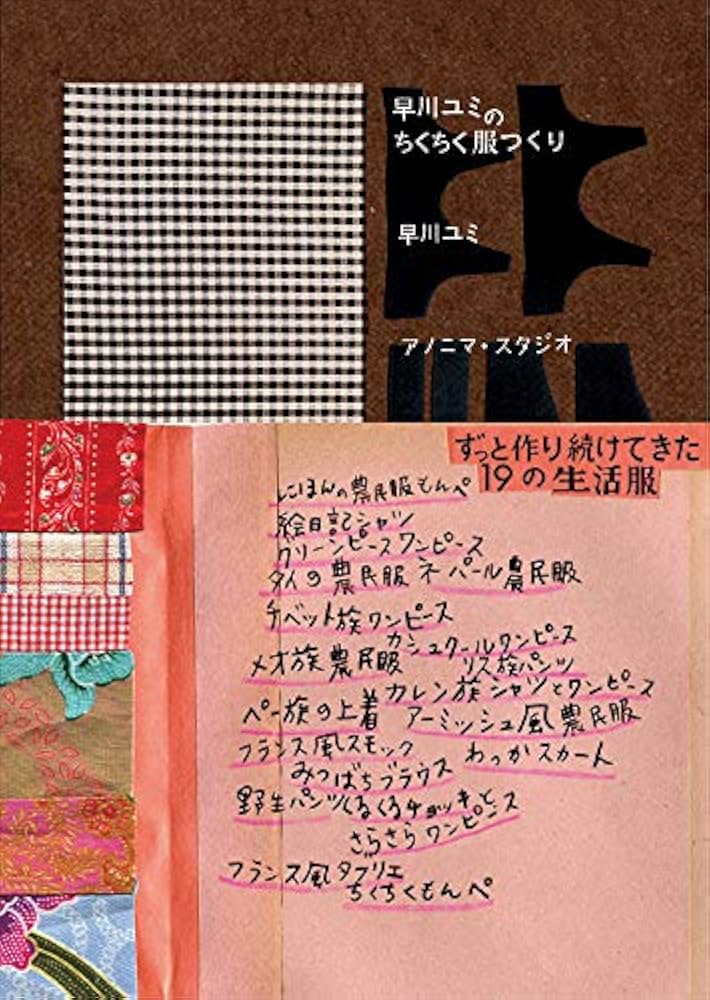 早川ユミの
ちくちく服つくり
早川ユミ
アノニマ・スタジオ
ずっと作り続けてきた
19の生活服
にほんの農民服もんぺ
絵日記シャツ
グリーンピースワンピース
タイの農民服 ネパール農民服
チベット族ワンピース
カシュクールワンピース
メオ族農民服
リス族パンツ
カレン族シャツとワンピース
ペー族の上着
アーミッシュ風農民服
フランス風スモック
わっかスカート
みつばちブラウス
野生パンツ くるくるチョッキと
さらさらワンピース
フランス風タブリエ
ちくちくもんぺ